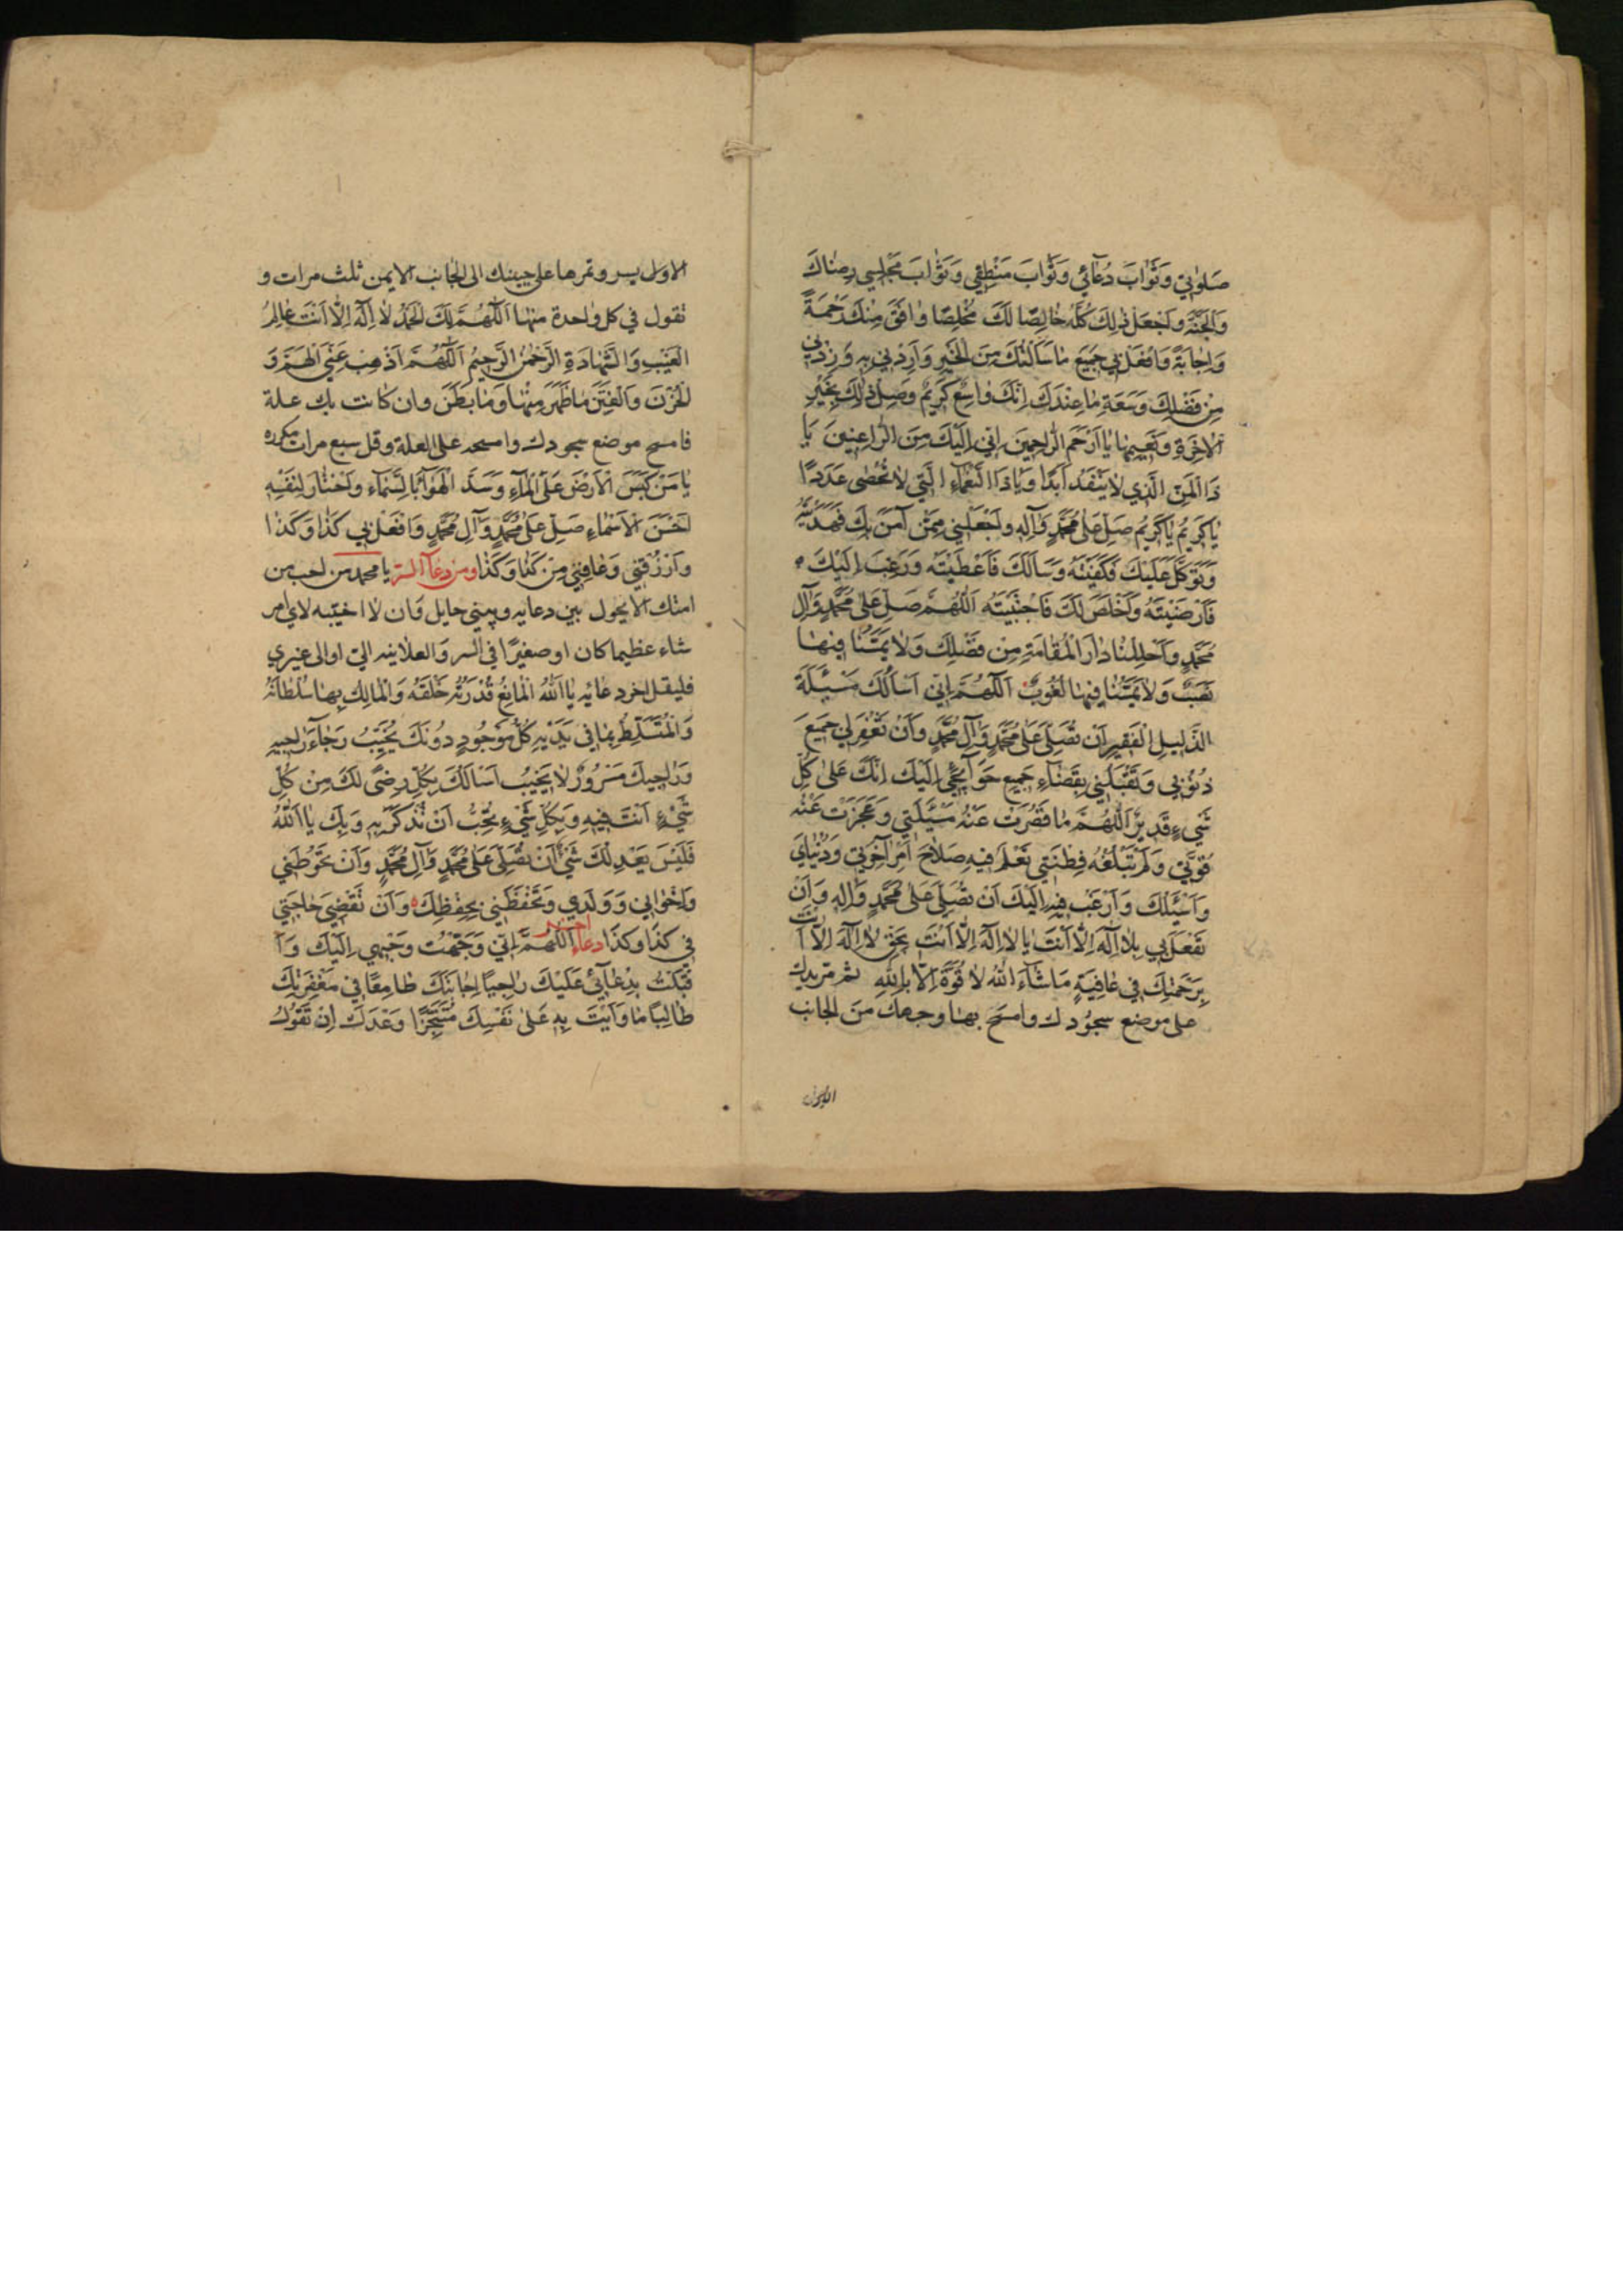 صَلوٰتِي وَثَوٰابَ دُعٰٓائِي وَثَوٰابَ مَنْطِقِي وَثَوٰابَ مَجْلِسِي رِضٰاكَ
وَالْجَنَّةَ وَاجْعَلْ ذٰلِكَ كُلَّهُ خٰالِصًا لَكَ مُخْلِصًا وٰافَقَ مِنْكَ رَحْمَةً
وَاِجٰابَةً وَافْعَلْ بِي جَمِيعَ مٰا سَاَلْتُكَ مِنَ الْخَيْرِ وَارْدُنِي بِهِ وَزِدْنِي
مِنْ فَضْلِكَ وَسَعَةِ مٰا عِنْدَكَ اِنَّكَ وٰاسِعٌ كَرِيمٌ وَصِلْ ذٰلِكَ بِخَيْرِ
الْاٰخِرَةِ وَنَعِيمِهٰا يٰا اَرْحَمَ الرّٰاحِمِينَ اِنِّي اِلَيْكَ مِنَ الرّٰاغِبِينَ يٰا
ذَا الْمَنِّ الَّذِي لٰا يَنْفَدُ اَبَدًا وَيٰا ذَا النَّعْمٰاءِ الَّتِي لٰا تُحْصٰى عَدَدًا
يٰا كَرِيمُ يٰا كَرِيمُ صَلِّ عَلٰى مُحَمَّدٍ وَآلِهِ وَاجْعَلْنِي مِمَّنْ آمَنَ بِكَ فَهَدَيْتَهُ
وَتَوَكَّلَ عَلَيْكَ فَكَفَيْتَهُ وَسَاَلَكَ فَاَعْطَيْتَهُ وَرَغِبَ اِلَيْكَ
فَاَرْضَيْتَهُ وَاَخْلَصَ لَكَ فَاَجْنَبْتَهُ اَللّٰهُمَّ صَلِّ عَلٰى مُحَمَّدٍ وَآلِ
مُحَمَّدٍ وَاَحْلِلْنٰا دٰارَ الْمُقٰامَةِ مِنْ فَضْلِكَ وَلٰا يَمَسُّنٰا فِيهٰا
نَصَبٌ وَلٰا يَمَسُّنٰا فِيهٰا لُغُوبٌ اَللّٰهُمَّ اِنِّي اَسْاَلُكَ مَسْئَلَةَ
الذَّلِيلِ الْفَقِيرِ اَنْ تُصَلِّيَ عَلٰى مُحَمَّدٍ وَآلِ مُحَمَّدٍ وَاَنْ تَغْفِرَ لِي جَمِيعَ
ذُنُوبِي وَتَقْلِبَنِي بِقَضٰاءِ جَمِيعِ حَوٰائِجِي اِلَيْكَ اِنَّكَ عَلٰى كُلِّ
شَيْءٍ قَدِيرٌ اَللّٰهُمَّ مٰا قَصُرَتْ عَنْهُ مَسْئَلَتِي وَعَجَزَتْ عَنْهُ
قُوَّتِي وَلَمْ تَبْلُغْهُ فِطْنَتِي تَعْلَمُ فِيهِ صَلٰاحَ اَمْرِ آخِرَتِي وَدُنْيٰايَ
وَاَسْئَلُكَ وَاَرْغَبُ فِيهِ اِلَيْكَ اَنْ تُصَلِّيَ عَلٰى مُحَمَّدٍ وَآلِهِ وَاَنْ
تَفْعَلَ بِي بِلٰا اِلٰهَ اِلّٰا اَنْتَ يٰا لٰا اِلٰهَ اِلّٰا اَنْتَ بِحَقِّ لٰا اِلٰهَ اِلّٰا اَنْتَ
بِرَحْمَتِكَ فِي عٰافِيَةٍ مٰا شٰاءَ اللهُ لٰا قُوَّةَ اِلّٰا بِاللهِ ثم تمر يدك
على موضع سجودك وامسح بها وجهك من الجانب
الاول يسر وتمرها على جبينك الى الجانب الايمن ثلث مرات و
تقول في كل واحدة منها اَللّٰهُمَّ لَكَ الْحَمْدُ لٰا اِلٰهَ اِلّٰا اَنْتَ عٰالِمُ
الْغَيْبِ وَالشَّهٰادَةِ الرَّحْمٰنُ الرَّحِيمُ اَللّٰهُمَّ اَذْهِبْ عَنِّي الْهَمَّ وَ
الْحُزْنَ وَالْفِتَنَ مٰا ظَهَرَ مِنْهٰا وَمٰا بَطَنَ وان كانت بك علة
فامسح موضع سجودك وامسحه على العلة وقل سبع مرات مكرره
يٰا مَنْ كَبَسَ الْاَرْضَ عَلَى الْمٰاءِ وَسَدَّ الْهَوٰاءَ بِالسَّمٰاءِ وَاخْتٰارَ لِنَفْسِهِ
اَحْسَنَ الْاَسْمٰاءِ صَلِّ عَلٰى مُحَمَّدٍ وَآلِ مُحَمَّدٍ وَافْعَلْ بِي كَذٰا وَكَذٰا
وَارْزُقْنِي وَعٰافِنِي مِنْ كَذٰا وَكَذٰا ومن دعاء السر يا محمد من احب من
امتك الا يحول بين دعايه وبيني حايل وان لا اخيبه لاي امر
شاء عظيما كان او صغيرًا في السر والعلانيه الي او الى غيري
فليقل اخر دعائه يٰا اَللهُ الْمٰانِعُ قُدْرَتُهُ خَلْقَهُ وَالْمٰالِكُ بِهٰا سُلْطٰانَهُ
وَالْمُتَسَلِّطُ بِمٰا فِي يَدَيْهِ كُلُّ مَوْجُودٍ دُونَكَ يُخَيِّبُ رَجٰاءَ رٰاجِيهِ
وَرٰاجِيكَ مَسْرُورٌ لٰا يَخِيبُ اَسْاَلُكَ بِكُلِّ رِضًى لَكَ مِنْ كُلِّ
شَيْءٍ اَنْتَ فِيهِ وَبِكُلِّ شَيْءٍ تُحِبُّ اَنْ تُذْكَرَ بِهِ وَبِكَ يٰا اَللهُ
فَلَيْسَ يَعْدِلُكَ شَيْءٌ اَنْ تُصَلِّيَ عَلٰى مُحَمَّدٍ وَآلِ مُحَمَّدٍ وَاَنْ تَحُوطَنِي
وَاِخْوٰانِي وَوَلَدِي وَتَحْفَظَنِي بِحِفْظِكَ وَاَنْ تَقْضِيَ حٰاجَتِي
فِي كَذٰا وَكَذٰا دعاء اخر اَللّٰهُمَّ اِنِّي وَجَّهْتُ وَجْهِي اِلَيْكَ وَاَ
قْبَلْتُ بِدُعٰائِي عَلَيْكَ رٰاجِيًا اِجٰابَتَكَ طٰامِعًا فِي مَغْفِرَتِكَ
طٰالِبًا مٰا وَاَيْتَ بِهِ عَلٰى نَفْسِكَ مُتَنَجِّزًا وَعْدَكَ اِذْ تَقُولُ